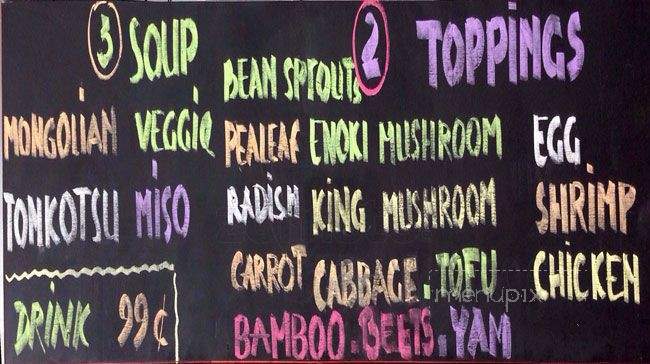 3 SOUP
MONGOLIAN VEGGIE
TONKOTSU MISO
DRINK 99¢
2 TOPPINGS
BEAN SPROUTS
PEALEAF ENOKI MUSHROOM EGG
RADISH KING MUSHROOM SHRIMP
CARROT CABBAGE . TOFU CHICKEN
BAMBOO . BEETS . YAM
menupix